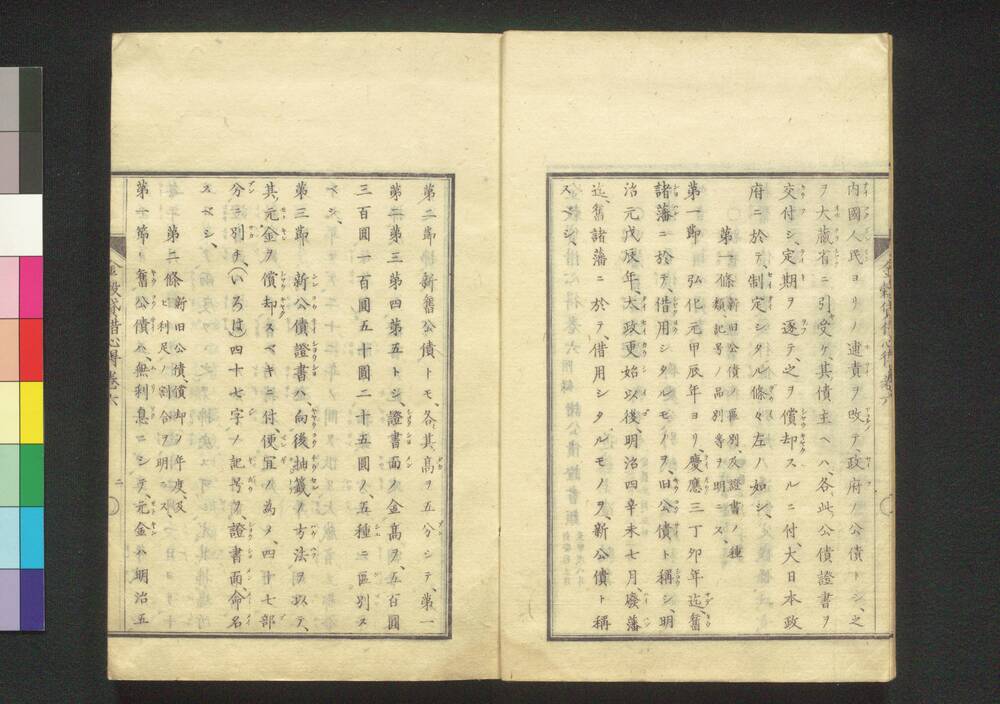 内國人民ヨリノ逋責ヲ改テ、政府ノ公債トシ、之
ヲ大藏省ニ引受ケ、其債主ヘハ、各此公債證書ヲ
交付シ、定期ヲ逐テ、之ヲ償却スルニ付、大日本政
府ニ於テ、制定シタル條々左ノ如シ、
第一條 新旧公債ノ區別、及證書ノ種
類、記号ノ品別等ヲ明ニス、
第一節 弘化元甲辰年ヨリ、慶應三丁卯年迄、舊
諸藩ニ於テ、借用シタルモノヲ、旧公債ト稱シ、明
治元戊辰年、太政更始以後、明治四辛未七月、廢藩
迄、舊諸藩ニ於テ、借用シタルモノヲ新公債ト稱
スベシ、
第二節 新舊公債トモ、各其高ヲ五分シテ、第一
第二第三第四第五トシ、證書面ノ金高ヲ、五百圓
三百圓一百圓五十圓二十五圓ノ、五種ニ區別ス
ベシ、
第三節 新公債證書ハ、向後抽籤ノ方法ヲ以テ、
其元金ヲ償却スベキニ付、便宜ノ為メ、四十七部
分ニ別チ(いろは)四十七字ノ記号ヲ、證書面、命名
スベシ、
第二條 新旧公債、償却ノ年度、及
ヒ利足ノ割合ヲ明ニス、
第一節 舊公債ハ、無利息ニシテ、元金ハ明治五
金穀貸借心得卷六
二